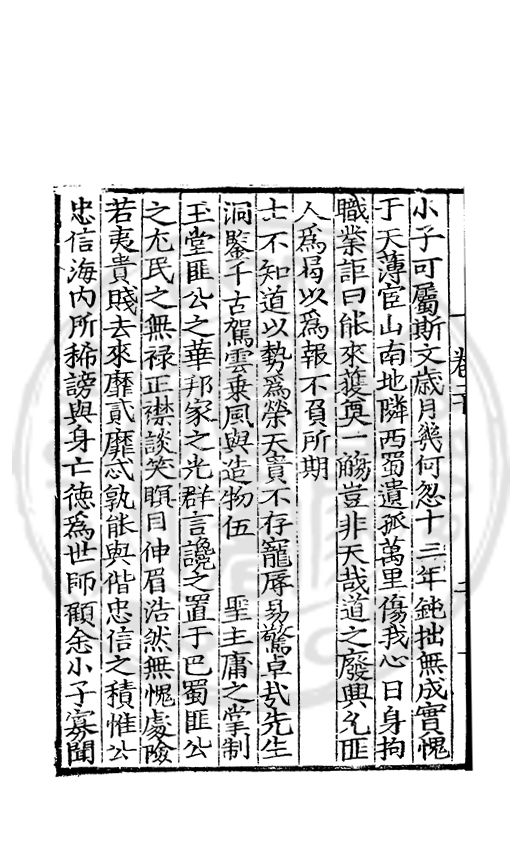 小子可屬斯文歲月幾何忽十三年鈍拙無成實愧
于天薄宦山南地隣西蜀遺孤萬里傷我心目身拘
職業詎曰能來蕆奠一觴豈非天哉道之廢興允匪
人為曷以為報不負所期
士不知道以勢為榮天貴不存寵辱易驚卓㢤先生
洞鑒千古駕雲乗風與造物伍　聖主庸之掌制
玉堂匪公之華邦家之光群言讒之置于巴蜀匪公
之尤民之無禄正襟談笑瞑目伸眉浩然無愧處險
若夷貴賤去來靡貳靡忒孰能與偕忠信之積惟公
忠信海内所稱謗與身亡徳為世師顧余小子寡聞
卷二下